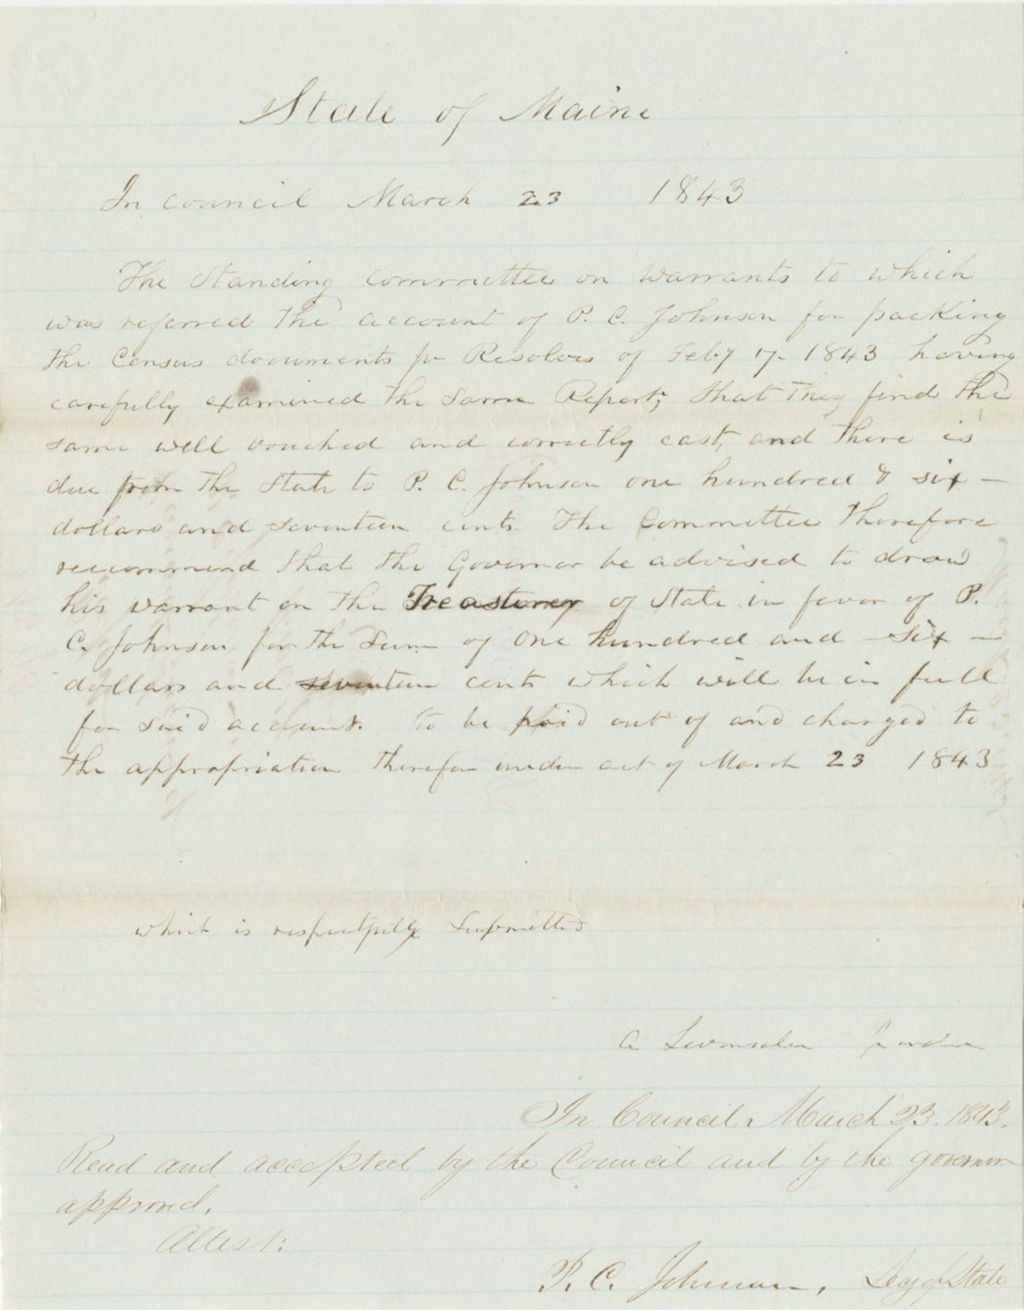 State of Maine
In Council March 23 1843
The Standing committee on Warrants to which
was referred the account of P. C. Johnson for packing
the Census documents pr Resolves of Feby 17- 1843 having
carefully examined the same Report; that they find the
same well vouched and correctly cast, and there is
due from the State to P. C. Johnson one hundred & six —
dollars and seventeen cents. The Committee therefore
recommend that the Governor be advised to draw
his warrant on the Treasurer of State in favor of P.
C. Johnson for the Sum of One hundred and — six —
dollars and seventeen cents which will be in full
for said account. To be paid out of and charged to
the appropriation therefor under act of March 23 1843
which is respectfully Submitted
A Levensaler
In Council March 23. 1843.
Read and accepted by the Council and by the governor
approved.
Attest:
P. C. Johnson, Secy of State